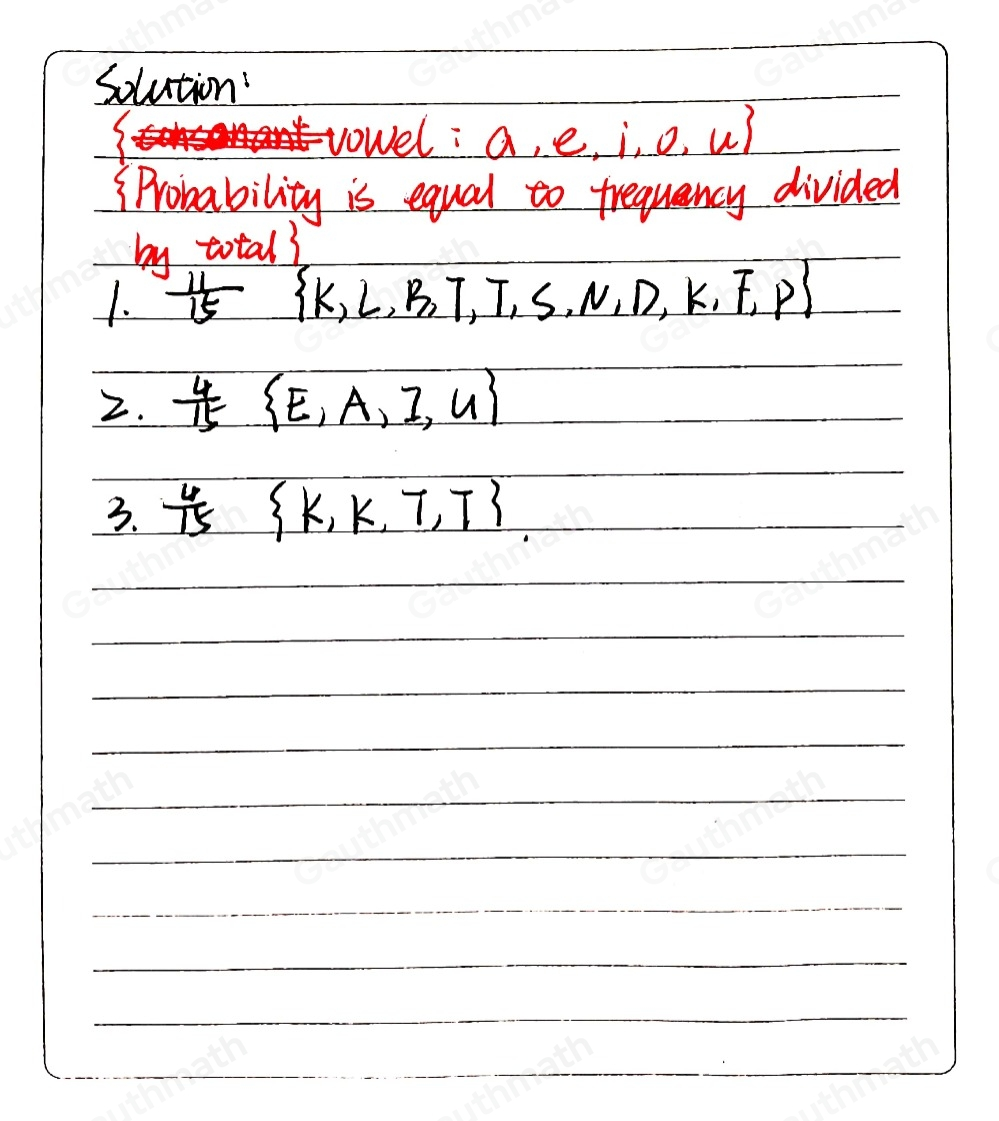 Solution:
{consonant vowel: a, e, i, o, u}
{Probability is equal to frequency divided
by total}
1. 11/15 {K, L, B, T, T, S, N, D, K, F, P}
2. 4/15 {E, A, I, U}
3. 4/15 {K, K, T, T}.
Gauthmath